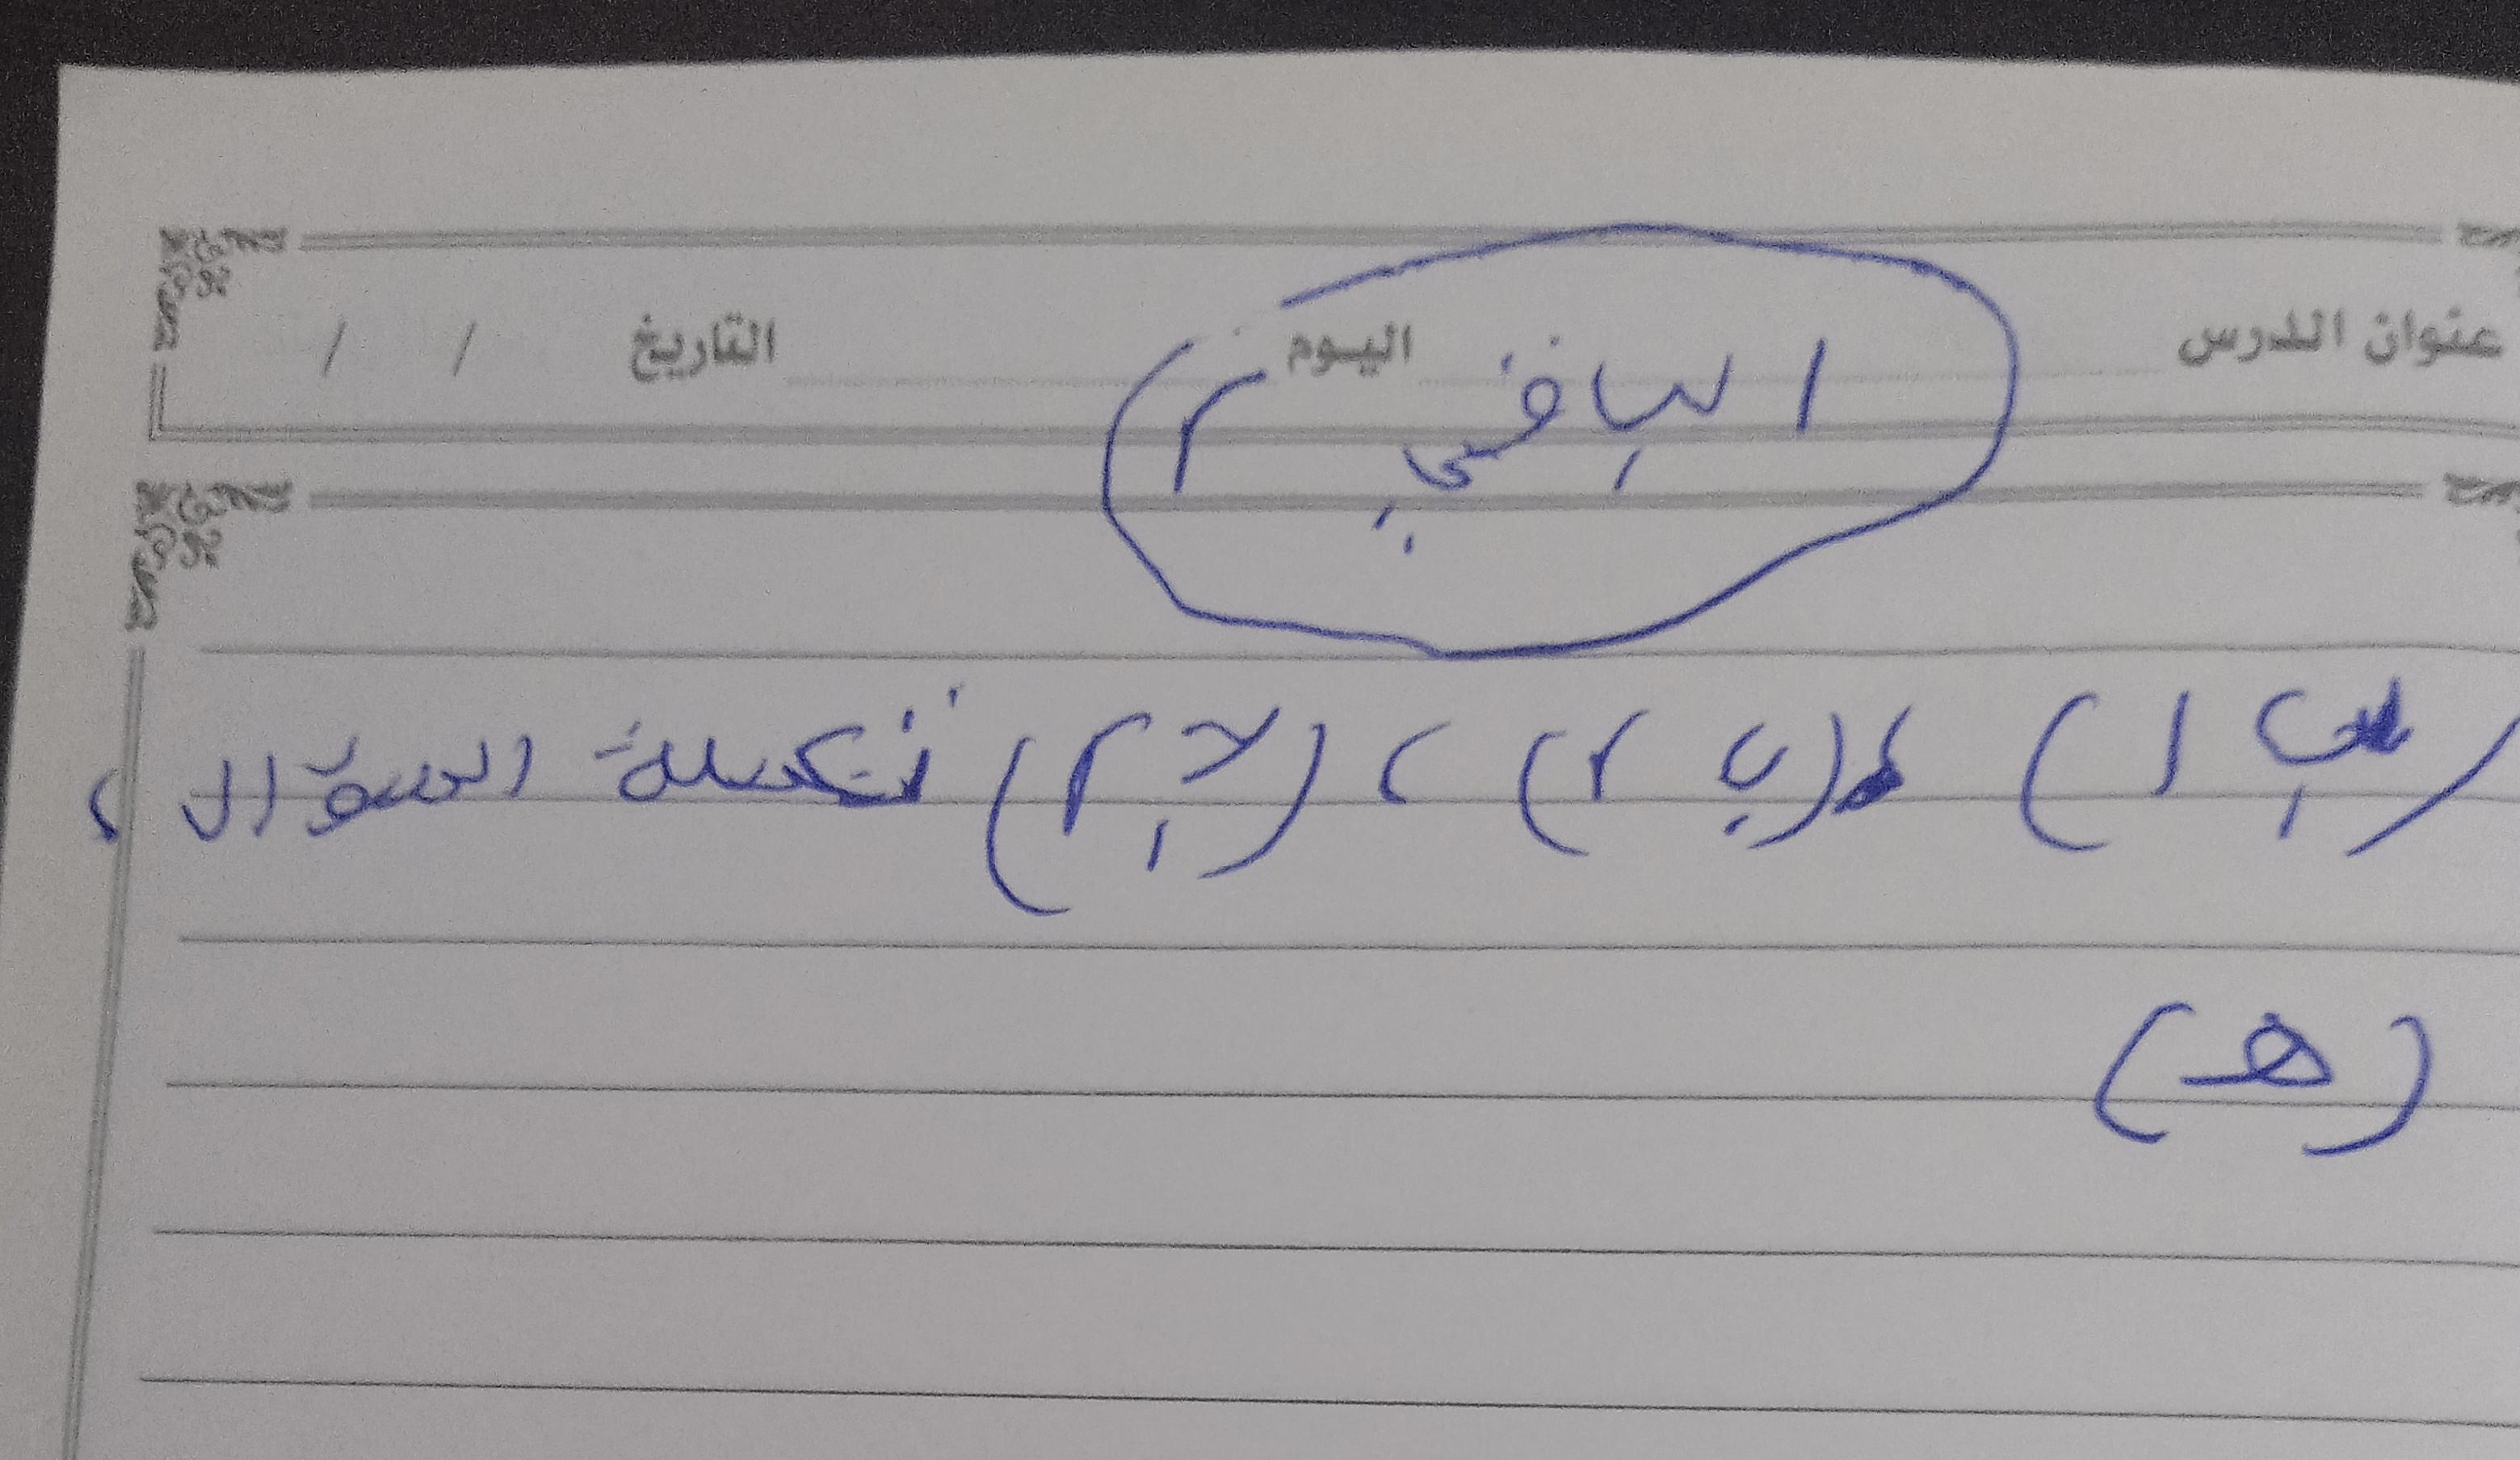 عنوان الدرس اليوم التاريخ / /
الباقي ٢
(ب ١) ، (ب ٢) ، (جـ ٢) تكملة السؤال ،
(هـ)